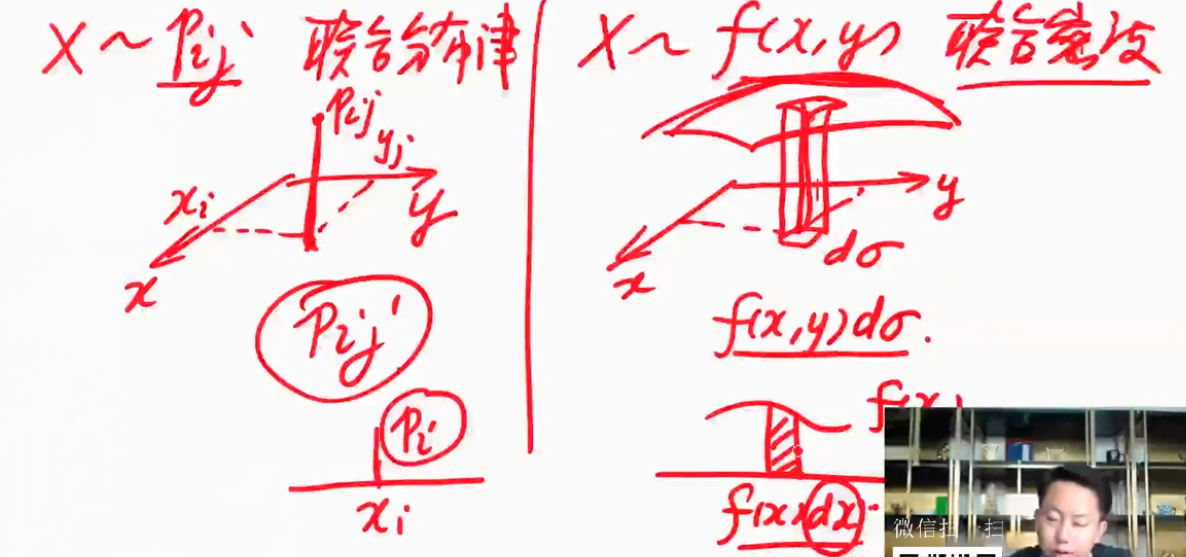 X ~ Pij 联合分布律
Pij
yj
xi
y
x
Pij
Pi
xi
X ~ f(x,y) 联合密度
y
dσ
x
f(x,y)dσ.
f(x)
f(x)dx
微信扫一扫